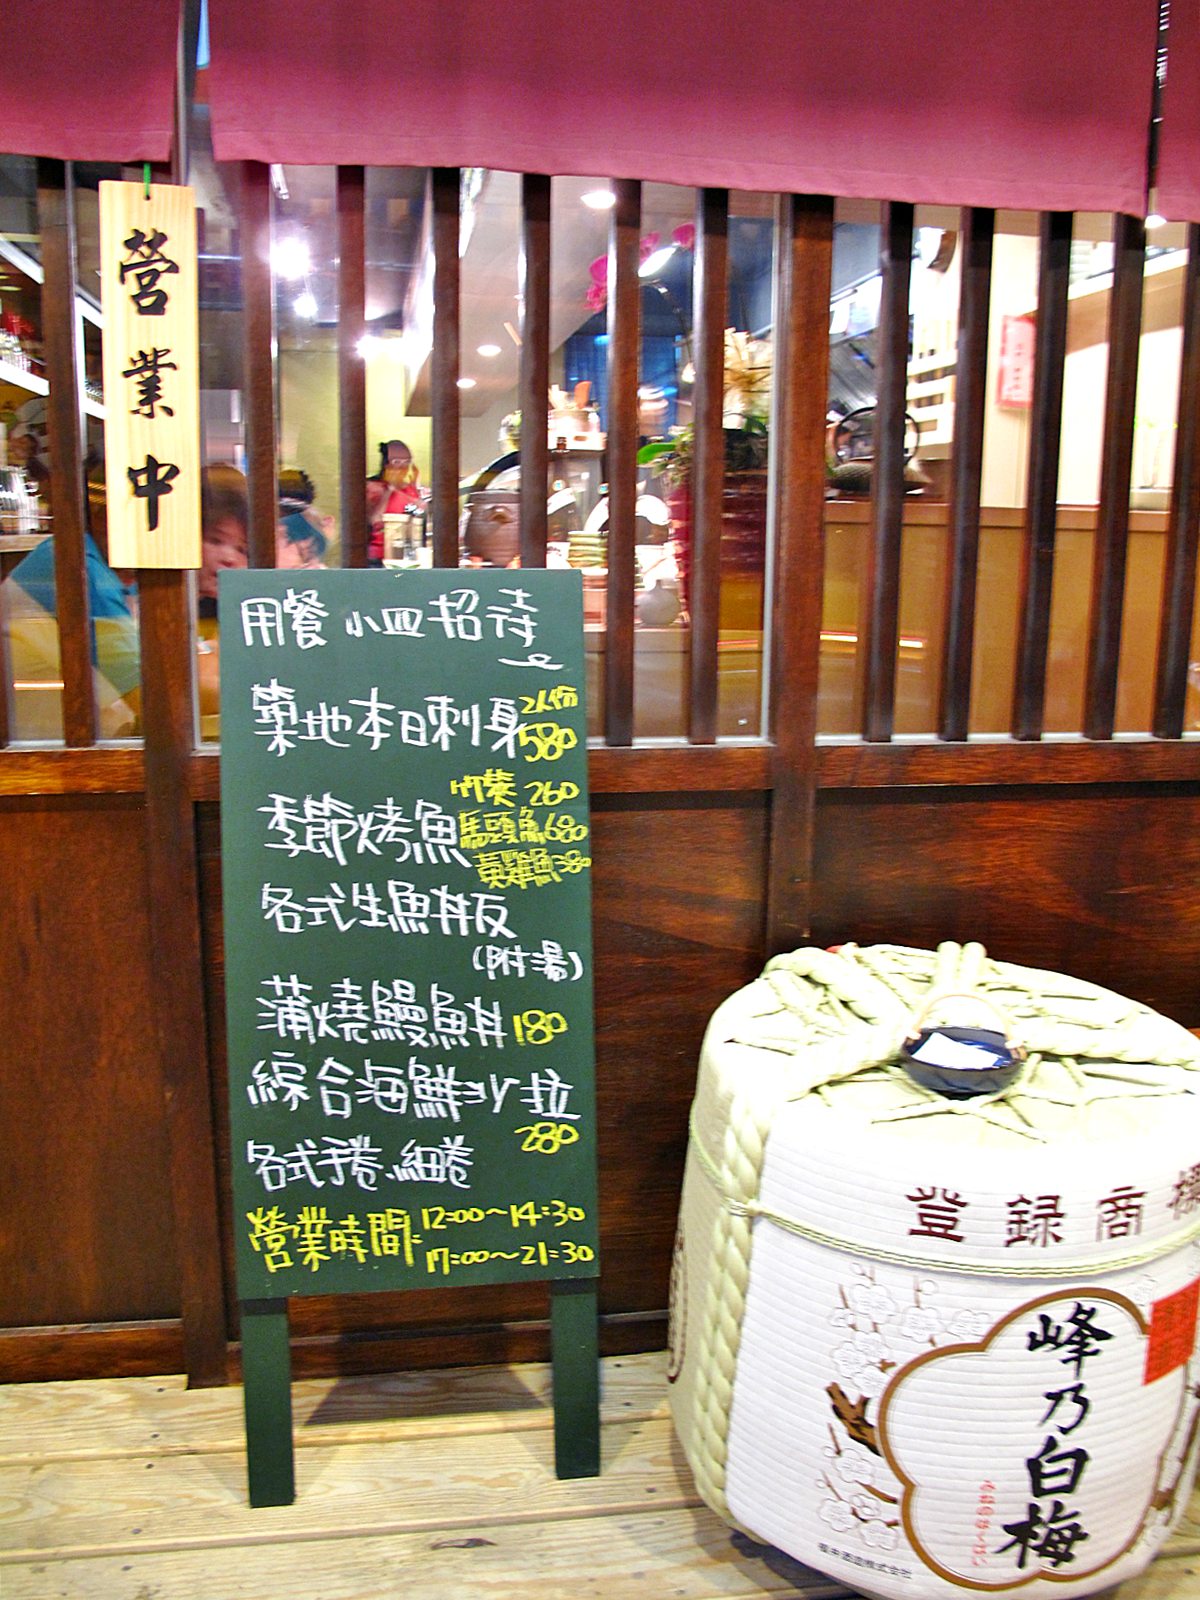 營業中
用餐 小皿招待
築地本日刺身 2人份 580
竹筴 260
季節烤魚 馬頭魚 680
黃雞魚 380
各式生魚丼飯
(附湯)
蒲燒鰻魚丼 180
綜合海鮮沙拉
280
各式手卷、細卷
營業時間: 12:00~14:30
17:00~21:30
登録商標
峰乃白梅
福井酒造株式会社